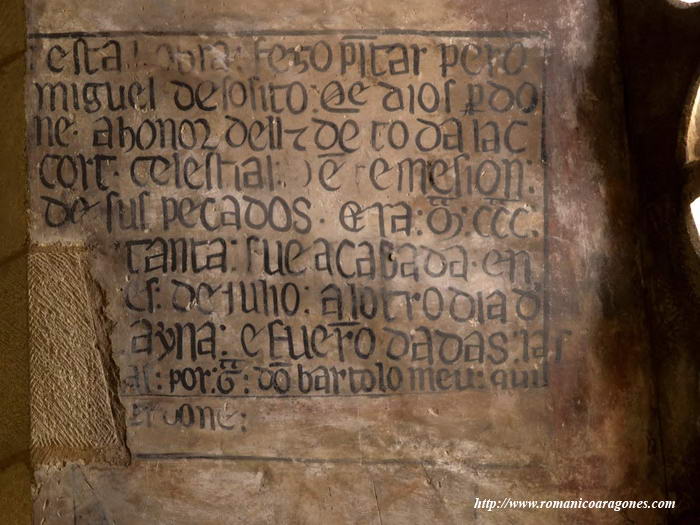 esta obra: fezo pītar pero
miguel de sosito: q̄e dios ꝑdo
ne. a honor dell ⁊ d̄e toda la c
cort. celestial: e remesiōn:
de sus pecados. era: m̄: ccc.
tanta: fue acabada: en
es: de julio: al otro dia d
ayna: e fuerō dadas: las
por: dō bartolomeu: qui
done:
http://www.romanicoaragones.com